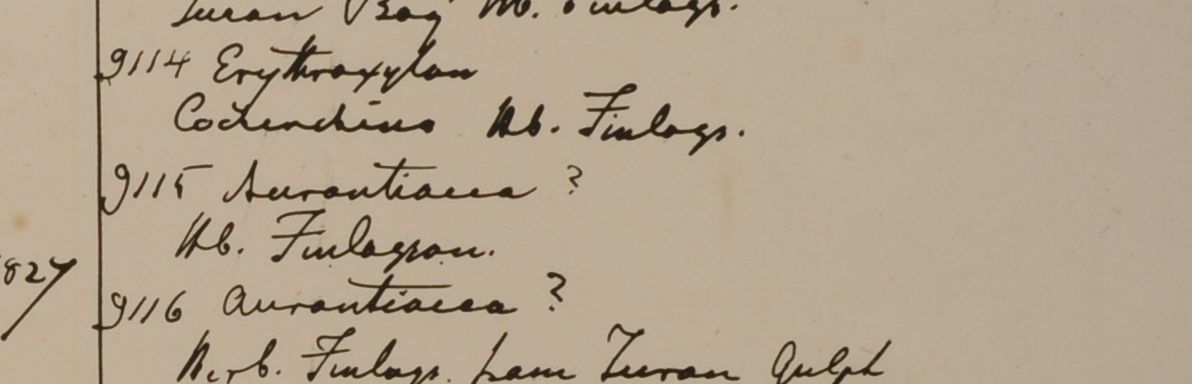 Turan Bay Hb. Finlays.
9114 Erythroxylon
Cochinchina Hb. Finlays.
9115 Aurantiacea ?
Hb. Finlayson.
827
9116 Aurantiacea ?
Herb. Finlays. from Turan Gulph